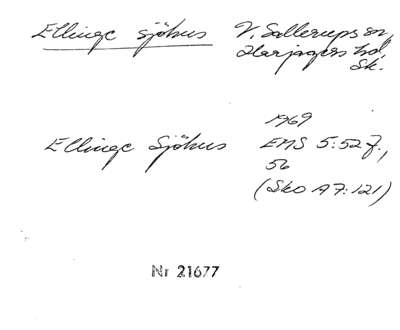 Ellinge sjöhus V. Sallerups sn,
Harjagers hd,
Sk.
1969
Ellinge Sjöhus EMS 5:52 f.,
56
(Sko A7:121)
Nr 21677